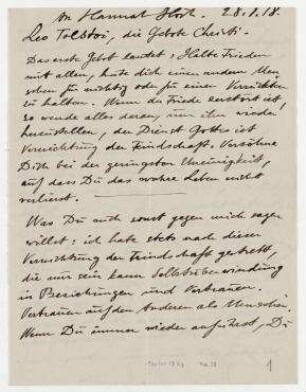 An Hannah Höch. 28.1.18.
Leo Tolstoi, die Gebote Christi.
Das erste Gebot lautet: Halte Frieden
mit allen, halte dich einen andern Men
schen für nichtig oder für einen Verrückten
zu halten. Wenn der Friede zerstört ist,
so wende alles daran, um ihn wieder
herzustellen, der Dienst Gottes ist
Vernichtung der Feindschaft. Versöhne
Dich bei der geringsten Uneinigkeit,
auf dass Du das wahre Leben nicht
verlierst.
Was Du auch sonst gegen mich sagen
willst: ich habe stets nach dieser
Vernichtung der Feindschaft gestrebt,
die nur sein kann Selbstüberwindung
in Beziehungen und Vertrauen.
Vertrauen auf den Anderen als Menschen.
Wenn Du immer wieder anführst, Du
1